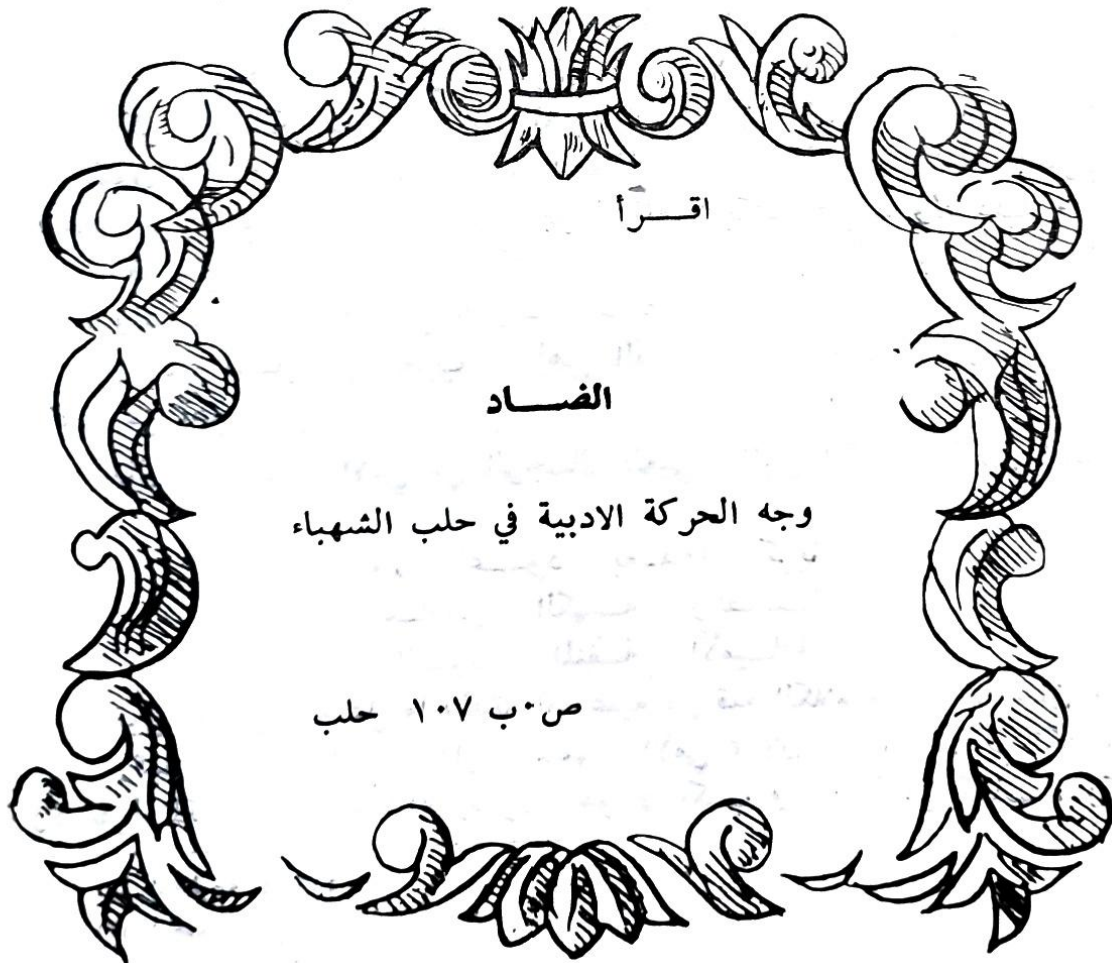 اقـــرأ
الضـــاد
وجه الحركة الادبية في حلب الشهباء
ص٠ب ١٠٧ حلب